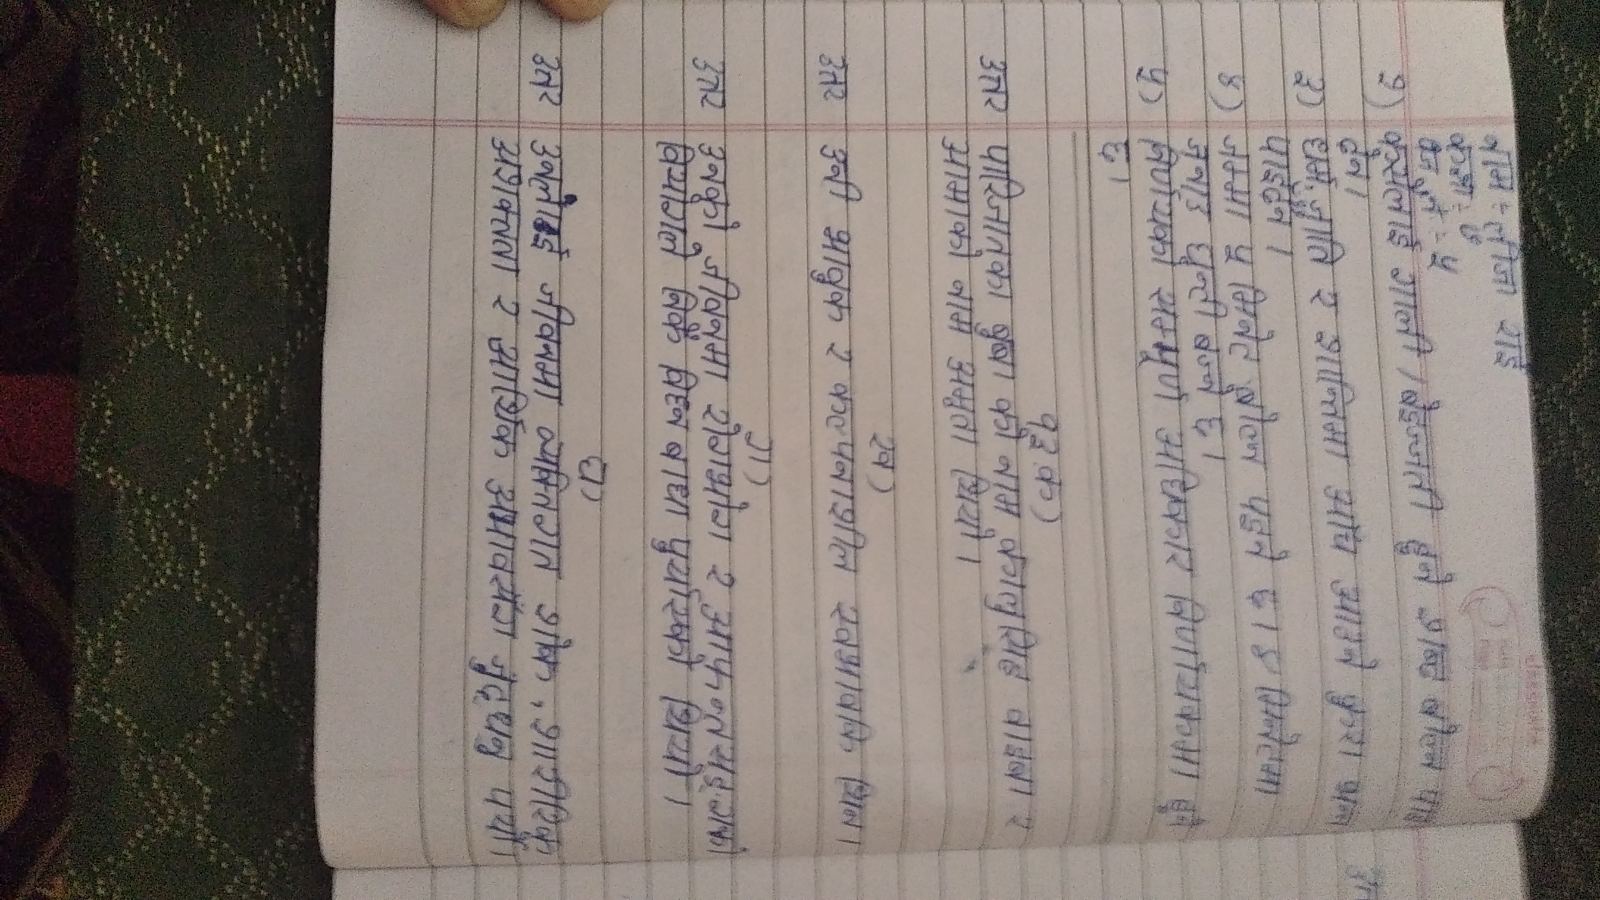 नाम = लीला राई
कक्षा = ८
क्र. सं. = ५
१) कसैलाई गाली / बेइज्जती हुने शब्द बोल्न पाइ
दैन।
३) धर्म, जाति र शान्तिमा आँच आउने कुरा भन्न
पाइदैन।
४) जम्मा ५ मिनेट बोल्न पाइने छ। ४ मिनेटमा
घण्टी बज्ने छ।
५) निर्णायकको सम्पूर्ण अधिकार निर्णायकमा हुने
छ।
क)
उत्तर पारिजातका बुबा को नाम कालुसिंह वाइबा र
आमाको नाम अमृता थियो।
ख)
उत्तर उनी भावुक र कल्पनाशील स्वभावकि थिन।
ग)
उत्तर उनको जीवनमा रोगभोग र आफन्तसङ्गको
वियोगले निकै विघ्न बाधा पुर्याएको थियो।
घ)
उत्तर उनलाई जीवनमा व्यक्तिगत शोक, शारीरिक
अशक्तता र आर्थिक अभावसँग जुध्नु पर्यो।